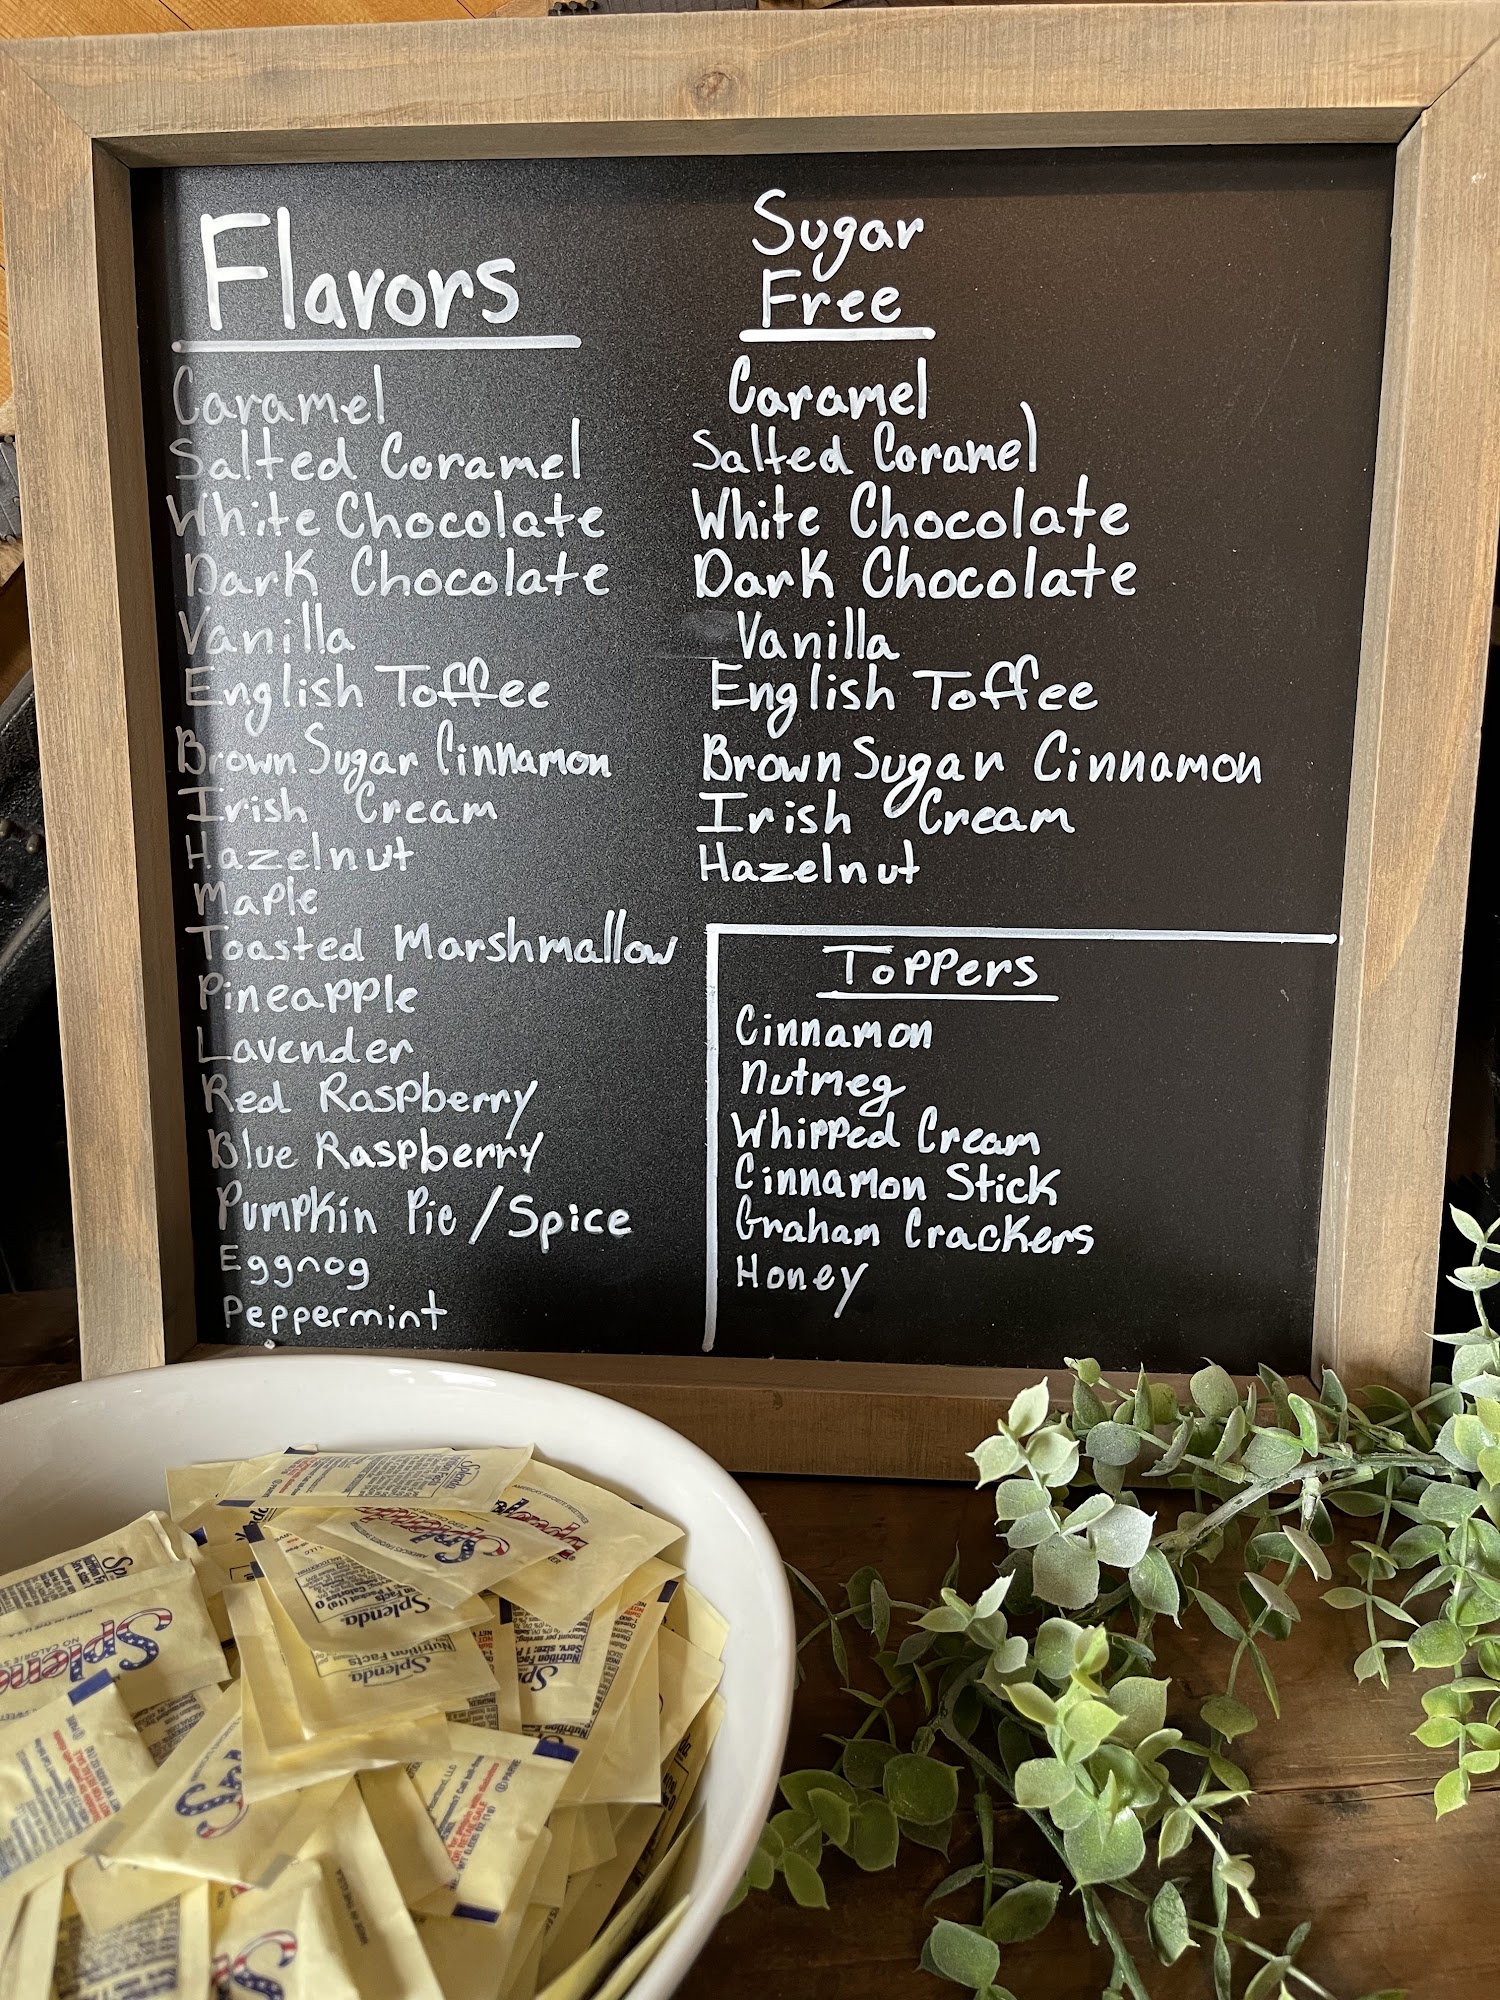 Flavors
Caramel
Salted Caramel
White Chocolate
Dark Chocolate
Vanilla
English Toffee
Brown Sugar Cinnamon
Irish Cream
Hazelnut
Maple
Toasted Marshmallow
Pineapple
Lavender
Red Raspberry
Blue Raspberry
Pumpkin Pie / Spice
Eggnog
Peppermint
Sugar
Free
Caramel
Salted Caramel
White Chocolate
Dark Chocolate
Vanilla
English Toffee
Brown Sugar Cinnamon
Irish Cream
Hazelnut
Toppers
Cinnamon
Nutmeg
Whipped Cream
Cinnamon Stick
Graham Crackers
Honey
Splenda
Splenda
Nutrition Facts
Splenda
Nutrition Facts